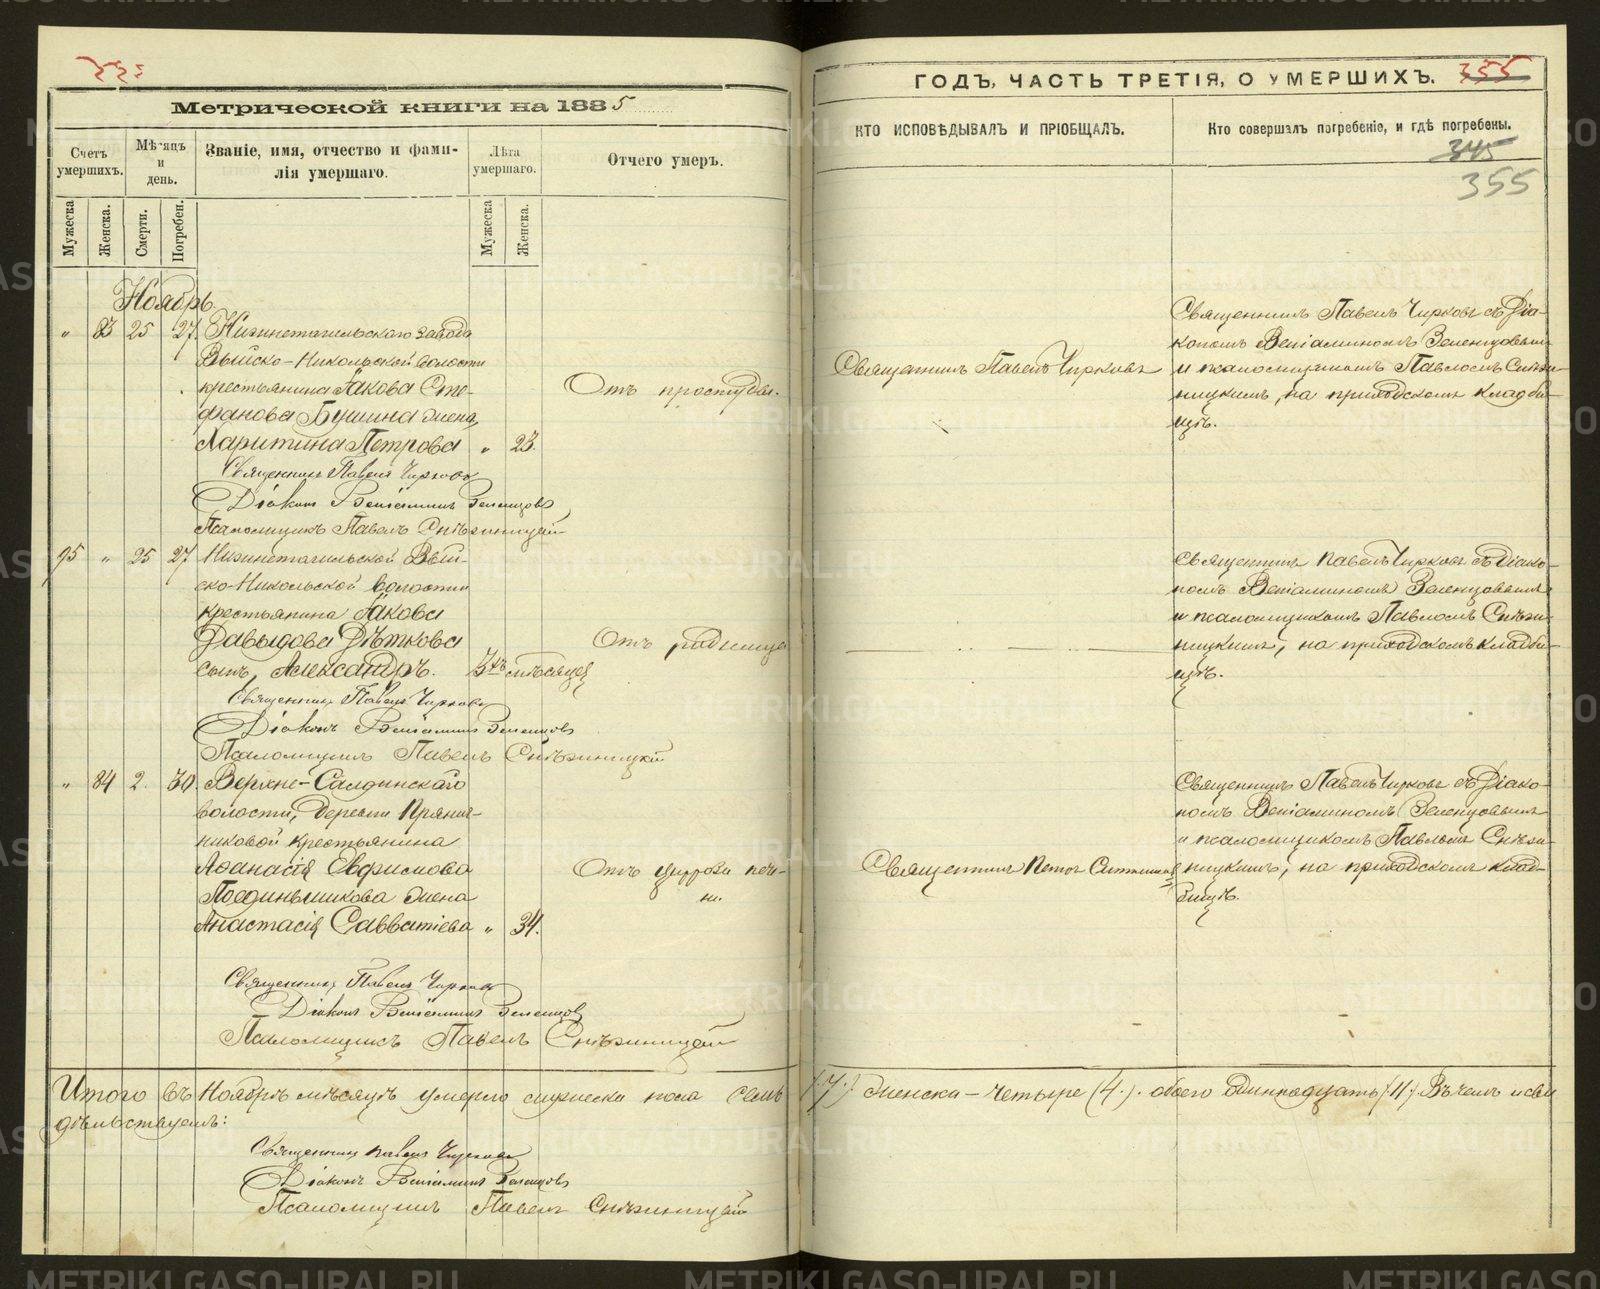 355
Метрической книги на 1885
Счетъ умершихъ.
Мѣсяцъ и день.
Званіе, имя, отчество и фами-
лія умершаго.
Лѣта умершаго.
Отчего умеръ.
Мужеска
Женска.
Смерти.
Погребен.
Мужеска
Женска.
Ноябрь
" 83 25 27. Нижнетагильскаго завода
Выйско-Никольской волости
крестьянина Іакова Сте-
фанова Бушина жена,
Харитина Петрова " 23.
Отъ простуды.
Священникъ Павелъ Чирковъ
Діаконъ Веніаминъ Зеленцовъ
Псаломщикъ Павелъ Снѣжницкій
95 " 25 27 Нижнетагильской Вый-
ско-Никольской волости
крестьянина Іакова
Давыдова Дѣткова
сынъ, Александръ. 3хъ мѣсяцевъ
Отъ родимца
Священникъ Павелъ Чирковъ
Діаконъ Веніаминъ Зеленцовъ
Псаломщикъ Павелъ Снѣжницкій
" 84 2. 30. Верхне-Салдинскаго
волости, деревни Прянич-
никовой крестьянина
Аѳанасія Евфимова
жена
Анастасія Савватіева " 34.
Отъ цирроза пече-
ни.
Священникъ Павелъ Чирковъ
Діаконъ Веніаминъ Зеленцовъ
Псаломщикъ Павелъ Снѣжницкій
Итого въ Ноябрѣ мѣсяцѣ умерло мужеска пола семь
дѣтельствуемъ:
Священникъ Павелъ Чирковъ
Діаконъ Веніаминъ Зеленцовъ
Псаломщикъ Павелъ Снѣжницкій
ГОДЪ, ЧАСТЬ ТРЕТІЯ, О УМЕРШИХЪ.
355
КТО ИСПОВѢДЫВАЛЪ И ПРІОБЩАЛЪ.
Кто совершалъ погребеніе, и гдѣ погребены.
345
355
Священникъ Павелъ Чирковъ
Священникъ Павелъ Чирковъ съ Діа-
кономъ Веніаминомъ Зеленцовымъ
и псаломщикомъ Павломъ Снѣж-
ницкимъ, на приходскомъ кладби-
щѣ.
Священникъ Павелъ Чирковъ съ Діако-
номъ Веніаминомъ Зеленцовымъ
и псаломщикомъ Павломъ Снѣж-
ницкимъ, на приходскомъ кладби-
щѣ.
Священникъ Петръ
Священникъ Павелъ Чирковъ съ Діако-
номъ Веніаминомъ Зеленцовымъ
и псаломщикомъ Павломъ Снѣж-
ницкимъ, на приходскомъ клад-
бищѣ.
(7.) женска – четыре (4.). обоего одиннадцать (11). Въ чемъ и сви
METRIKI.GASO-URAL.RU